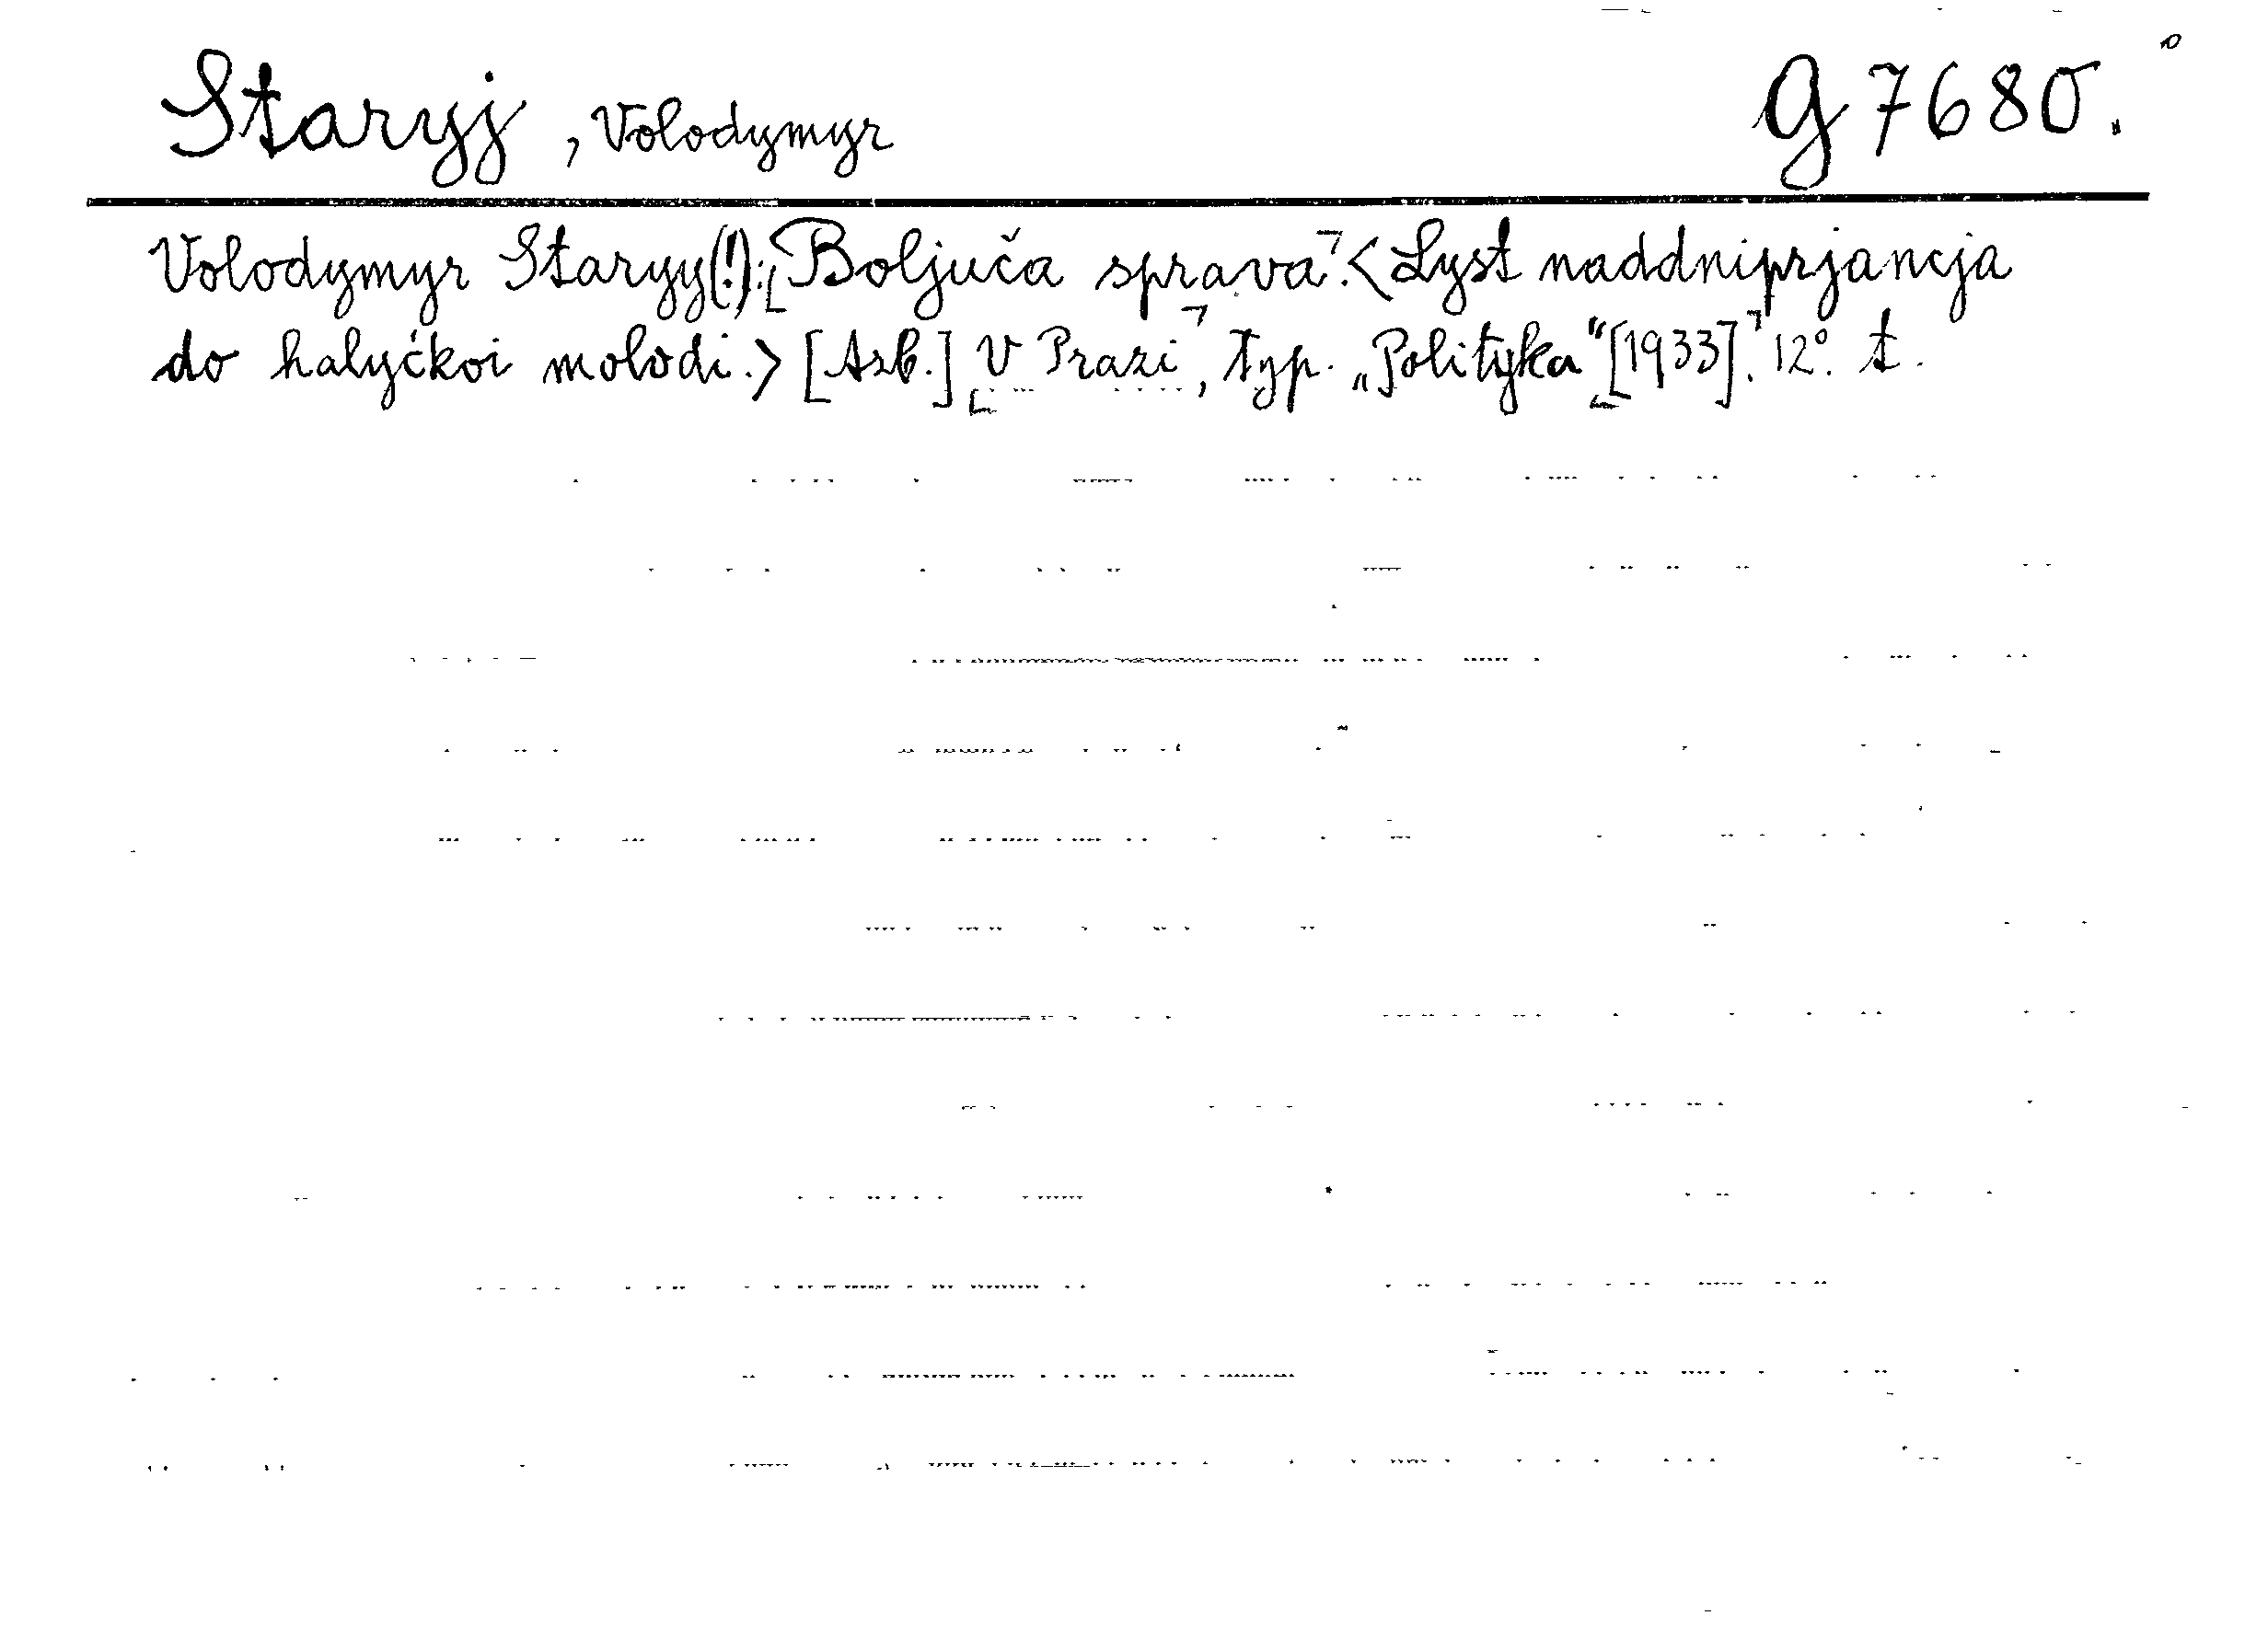 Staryj, Volodymyr G 7680.
Volodymyr Staryy(!): ⌊Boljuča sprava⌝. <Lyst naddniprjancja
do halyćkoi molodi.> [Azb.] ⌊V Prazi⌝, typ. „Polityka“ ⌊[1933].⌝ 12°. t.